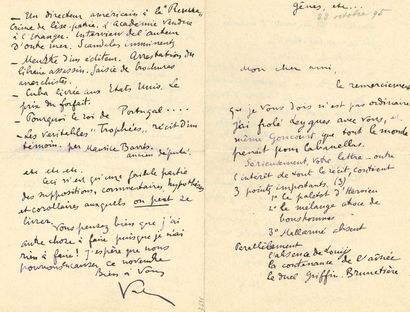 Gênes, etc...
23 octobre 95
Mon cher ami,
le remerciement
que je vous dois n'est pas ordinaire
J'ai frolé Leygues avec vous,
même Goncourt que tout le monde
prenait pour Cabanellas.
Sérieusement, votre lettre – outre
l'intérêt de tout le récit, contient
3 points importants. (3)
1° le paletot d'Hervieu
2° le mélange atroce de
bonshommes
3° Mallarmé absent
Parallèlement
l'absence de Louÿs
la contenance de l'
le duel Griffin-Brunetière
– Un directeur américain à la "Revue",
Crime de lèse-patrie. L'Académie vendue
à l'Étranger. Interview de l'auteur
d'Outre mer. Scandales imminents
– Meurtre d'un éditeur. Arrestation du
libraire assassin. Saisie de brochures
anarchistes.
– Cuba livrée aux États Unis. Le
prix du forfait.
– Pourquoi le roi de Portugal....
– Les véritables "Trophées", récit d'un
témoin. par Maurice Barrès.
ancien député.
etc etc etc.
Ceci n'est qu'une faible partie
des suppositions, commentaires, hypothèses
et corollaires auxquels on peut se
livrer.
Vous pensez bien que j'ai
autre chose à faire puisque je n'ai
rien à faire! J'espère que nous
pourrons causer, ce novembre
Bien à Vous
Val